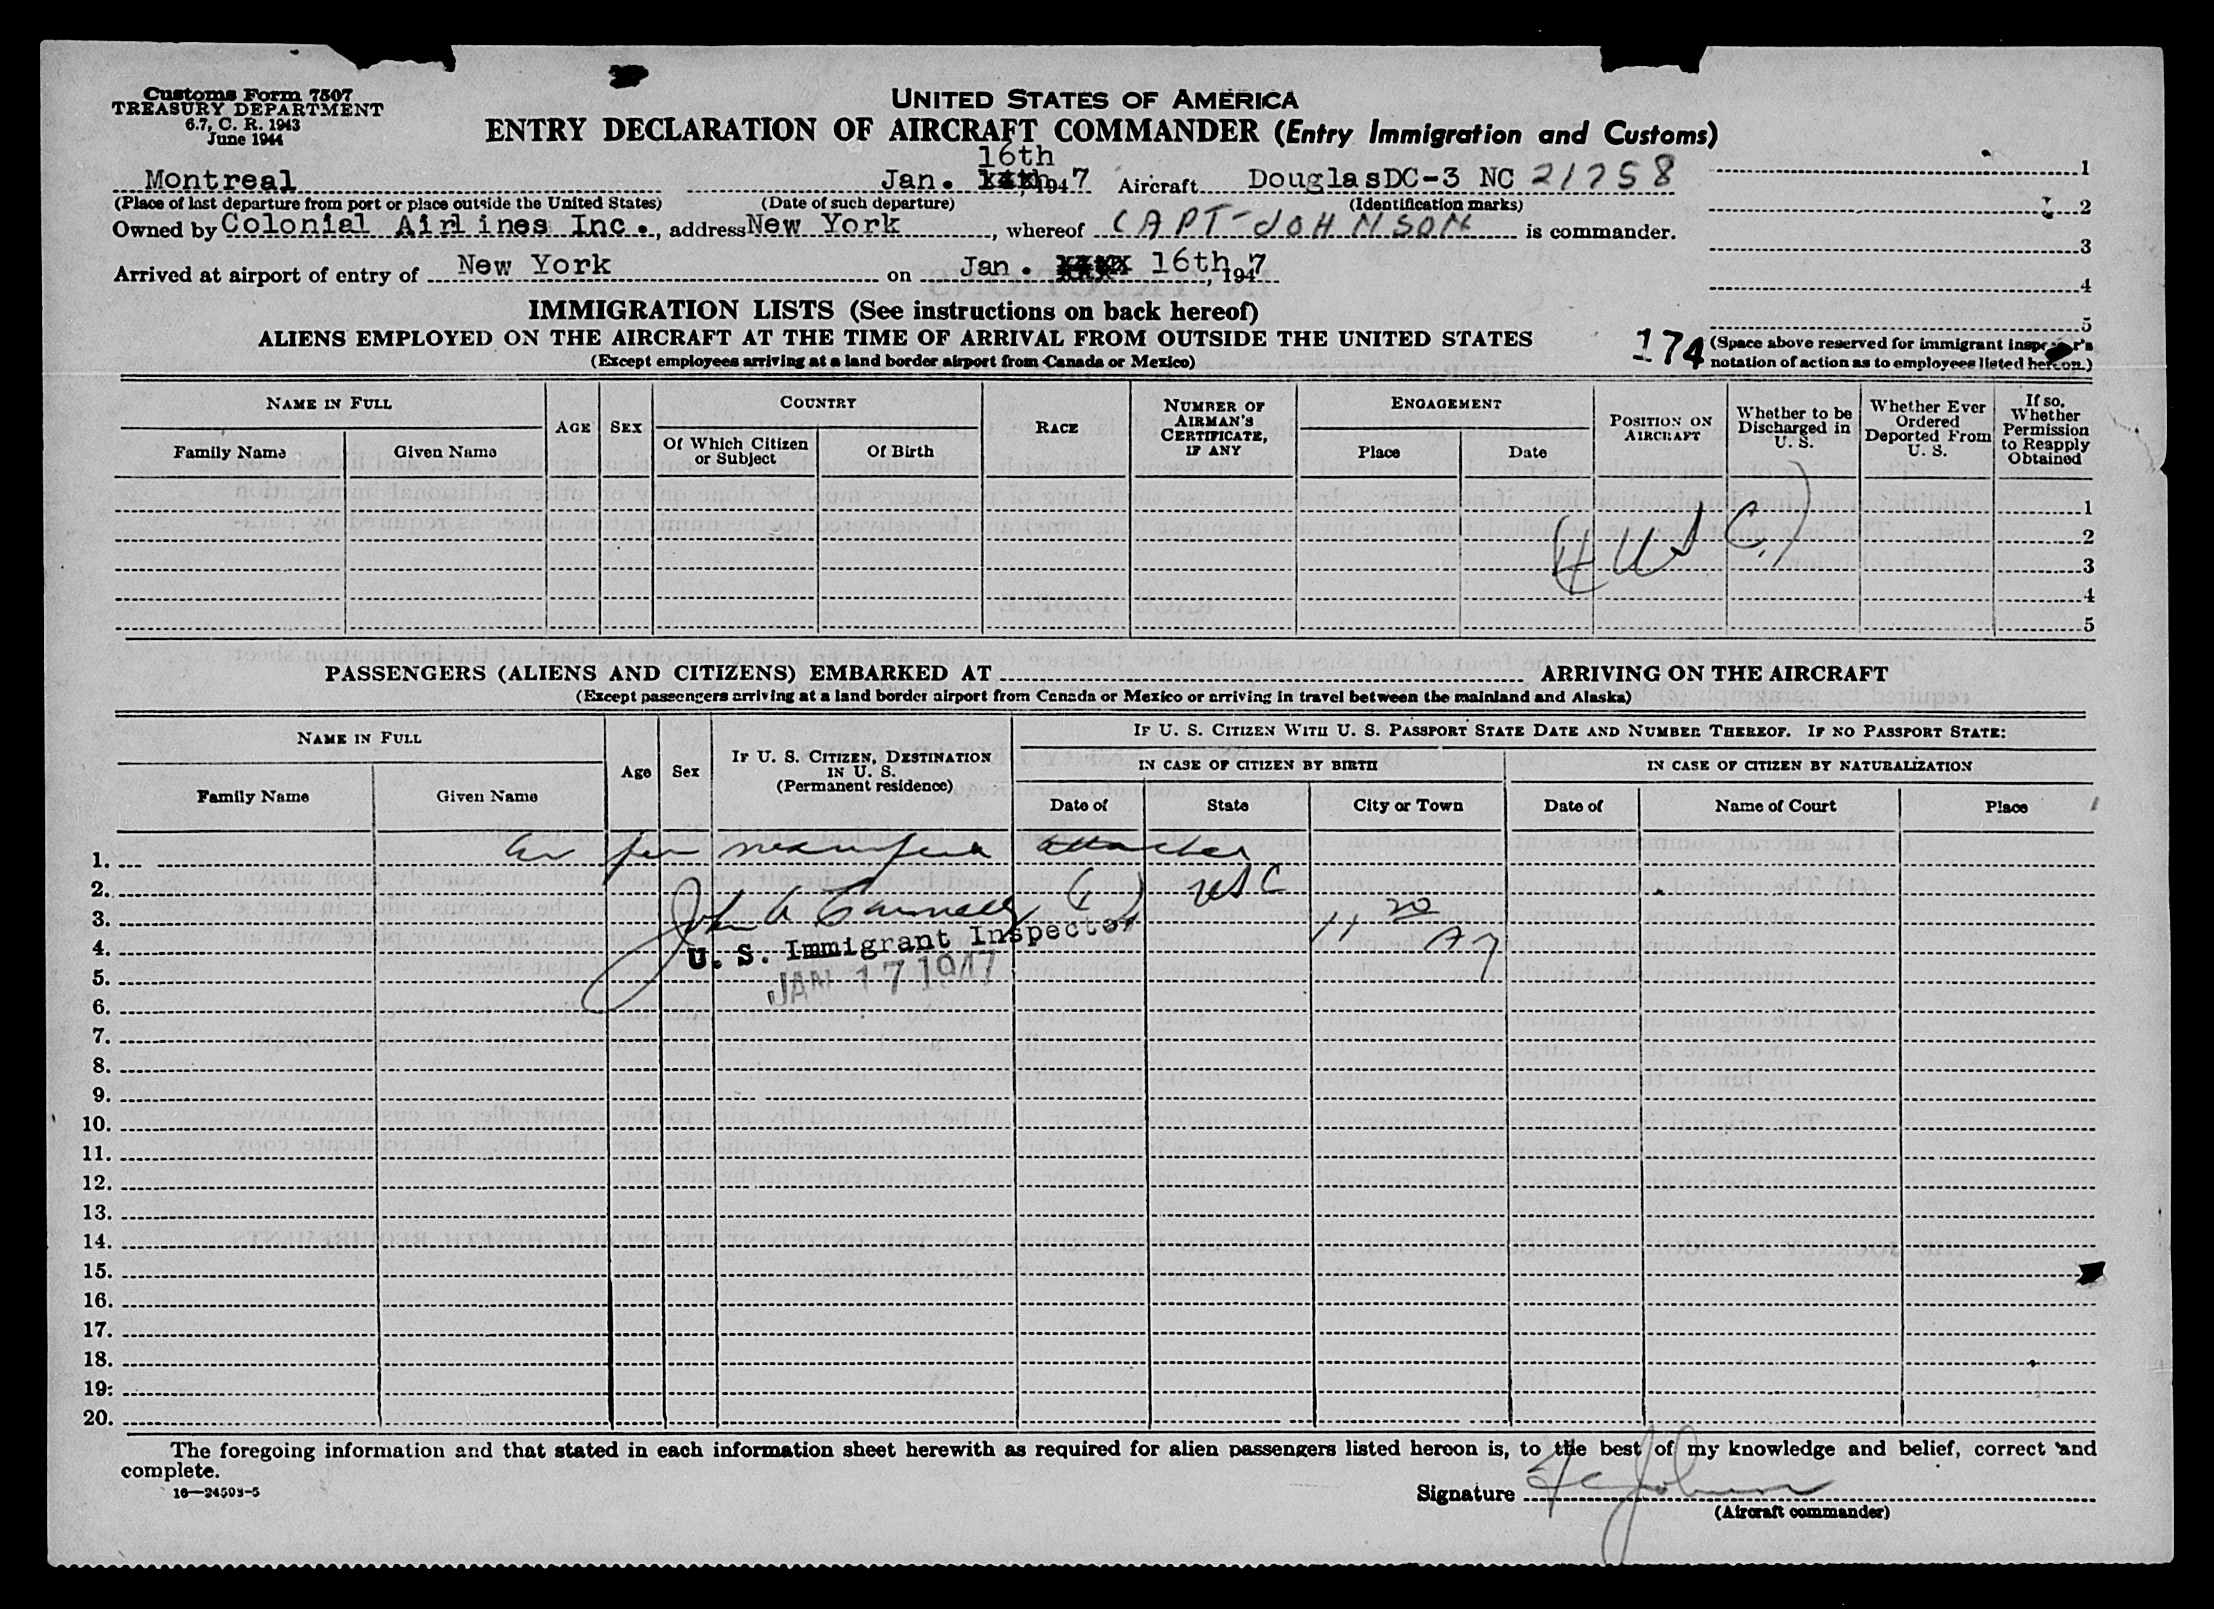 Customs Form 7507
TREASURY DEPARTMENT
6.7, C. R. 1943
June 1944
UNITED STATES OF AMERICA
ENTRY DECLARATION OF AIRCRAFT COMMANDER (Entry Immigration and Customs)
16th
Montreal Jan. 1947 Aircraft Douglas DC-3 NC 21758
(Place of last departure from port or place outside the United States) (Date of such departure) (Identification marks)
Owned by Colonial Airlines Inc., address New York, whereof CAPT-JOHNSON is commander.
Arrived at airport of entry of New York on Jan. 16th, 1947
1
2
3
4
5
IMMIGRATION LISTS (See instructions on back hereof)
ALIENS EMPLOYED ON THE AIRCRAFT AT THE TIME OF ARRIVAL FROM OUTSIDE THE UNITED STATES
(Except employees arriving at a land border airport from Canada or Mexico)
174
(Space above reserved for immigrant inspector's
notation of action as to employees listed hereon.)
NAME IN FULL
Family Name Given Name
AGE SEX
COUNTRY
Of Which Citizen or Subject Of Birth
RACE
NUMBER OF AIRMAN'S CERTIFICATE, IF ANY
ENGAGEMENT
Place Date
POSITION ON AIRCRAFT
Whether to be Discharged in U. S.
Whether Ever Ordered Deported From U. S.
If so, Whether Permission to Reapply Obtained
1
2
3
4
5
(4 USC)
PASSENGERS (ALIENS AND CITIZENS) EMBARKED AT ARRIVING ON THE AIRCRAFT
(Except passengers arriving at a land border airport from Canada or Mexico or arriving in travel between the mainland and Alaska)
NAME IN FULL
Family Name Given Name
Age Sex
IF U. S. CITIZEN, DESTINATION IN U. S.
(Permanent residence)
IF U. S. CITIZEN WITH U. S. PASSPORT STATE DATE AND NUMBER THEREOF. IF NO PASSPORT STATE:
IN CASE OF CITIZEN BY BIRTH IN CASE OF CITIZEN BY NATURALIZATION
Date of State City or Town Date of Name of Court Place
1. per manifest attached
2. USC
3. John A 11 20
4. U. S. Immigrant Inspector
5. JAN 17 1947
6.
7.
8.
9.
10.
11.
12.
13.
14.
15.
16.
17.
18.
19.
20.
The foregoing information and that stated in each information sheet herewith as required for alien passengers listed hereon is, to the best of my knowledge and belief, correct and
complete.
16—24503-5
Signature
(Aircraft commander)